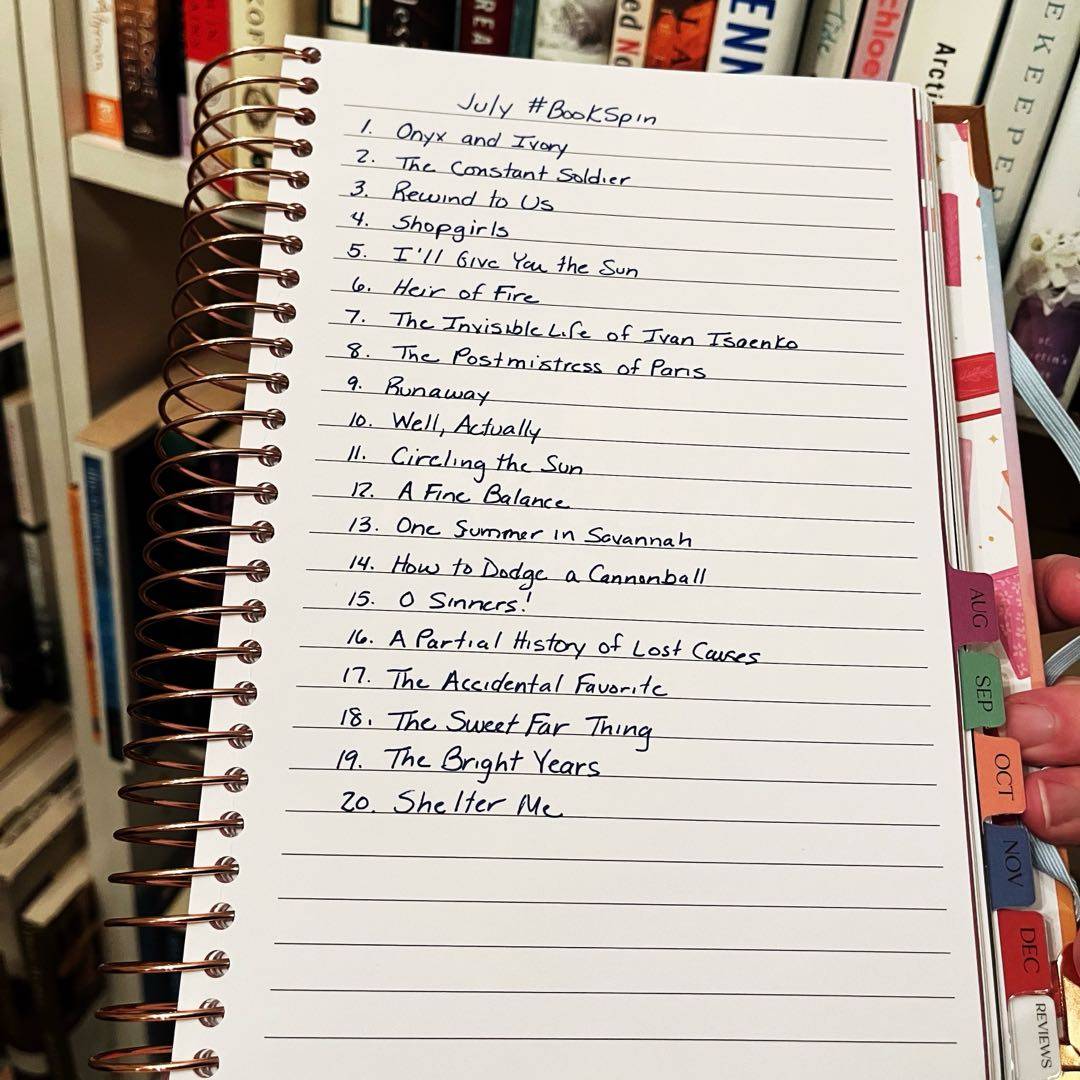 ENN
Tide
Chloe
Arcti
EKEEPER
July #BookSpin
1. Onyx and Ivory
2. The Constant Soldier
3. Rewind to Us
4. Shopgirls
5. I'll Give You the Sun
6. Heir of Fire
7. The Invisible Life of Ivan Isaenko
8. The Postmistress of Paris
9. Runaway
10. Well, Actually
11. Circling the Sun
12. A Fine Balance
13. One Summer in Savannah
14. How to Dodge a Cannonball
15. O Sinners!
16. A Partial History of Lost Causes
17. The Accidental Favorite
18. The Sweet Far Thing
19. The Bright Years
20. Shelter Me
AUG
SEP
OCT
NOV
DEC
REVIEWS